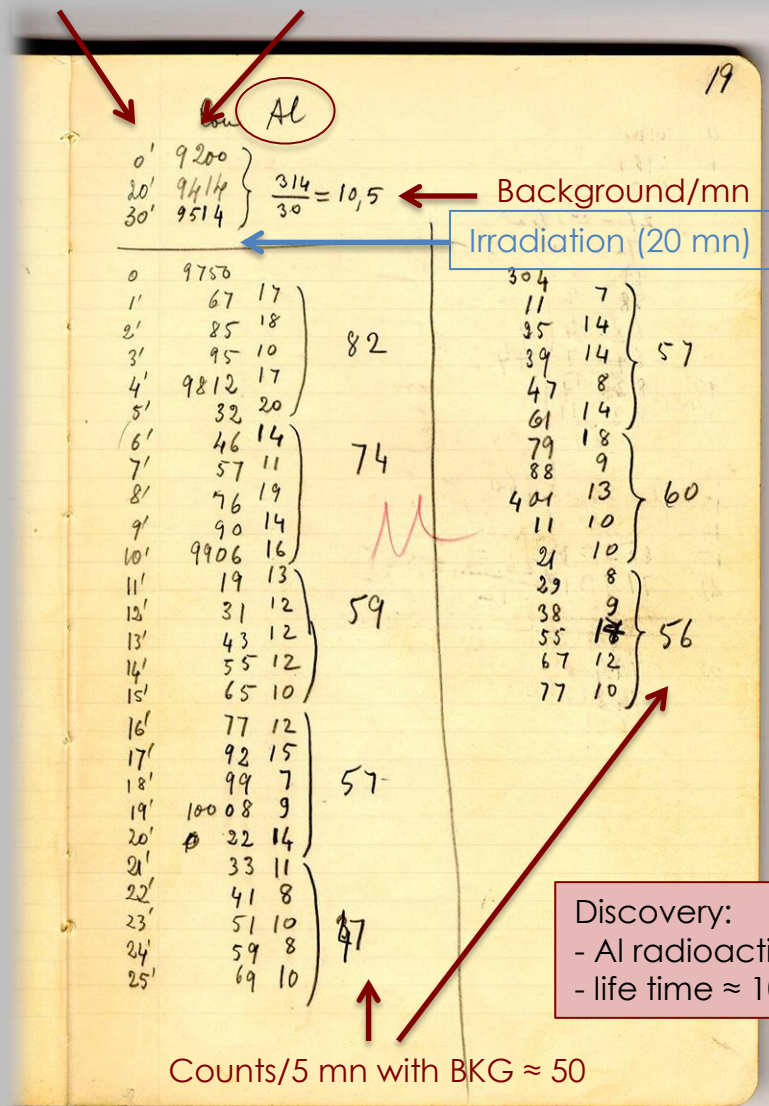 19
Al
0' 9200
20' 9414
30' 9514
314/30 = 10,5
Background/mn
Irradiation (20 mn)
0 9750
1' 67 17
2' 85 18
3' 95 10
4' 9812 17
5' 32 20
82
6' 46 14
7' 57 11
8' 76 19
9' 90 14
10' 9906 16
74
11' 19 13
12' 31 12
13' 43 12
14' 55 12
15' 65 10
59
16' 77 12
17' 92 15
18' 99 7
19' 10008 9
20' 22 14
57
21' 33 11
22' 41 8
23' 51 10
24' 59 8
25' 69 10
47
304
11 7
25 14
39 14
47 8
61 14
57
79 18
88 9
401 13
11 10
21 10
60
29 8
38 9
55 17
67 12
77 10
56
Discovery:
- Al radioacti
- life time ≈ 10
Counts/5 mn with BKG ≈ 50